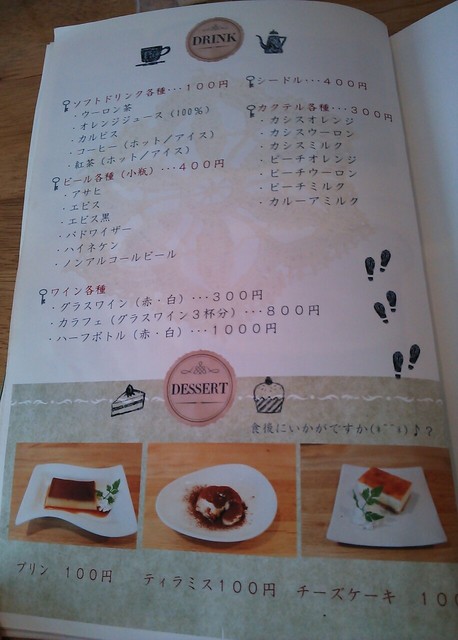 DRINK
ソフトドリンク各種･･･１００円
・ウーロン茶
・オレンジジュース（100％）
・カルピス
・コーヒー（ホット／アイス）
・紅茶（ホット／アイス）
ビール各種（小瓶）･･･４００円
・アサヒ
・エビス
・エビス黒
・バドワイザー
・ハイネケン
・ノンアルコールビール
シードル･･･４００円
カクテル各種･･･３００円
・カシスオレンジ
・カシスウーロン
・カシスミルク
・ピーチオレンジ
・ピーチウーロン
・ピーチミルク
・カルーアミルク
ワイン各種
・グラスワイン（赤・白）･･･３００円
・カラフェ（グラスワイン３杯分）･･･８００円
・ハーフボトル（赤・白）･･･１０００円
DESSERT
食後にいかがですか♪？
プリン １００円
ティラミス１００円
チーズケーキ １００